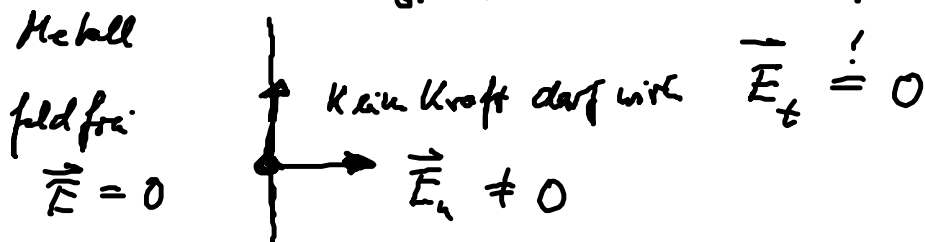 Metall
feldfrei
E⃗ = 0
Kein Kraft darf wirk
E⃗_t =! 0
E⃗_n ≠ 0